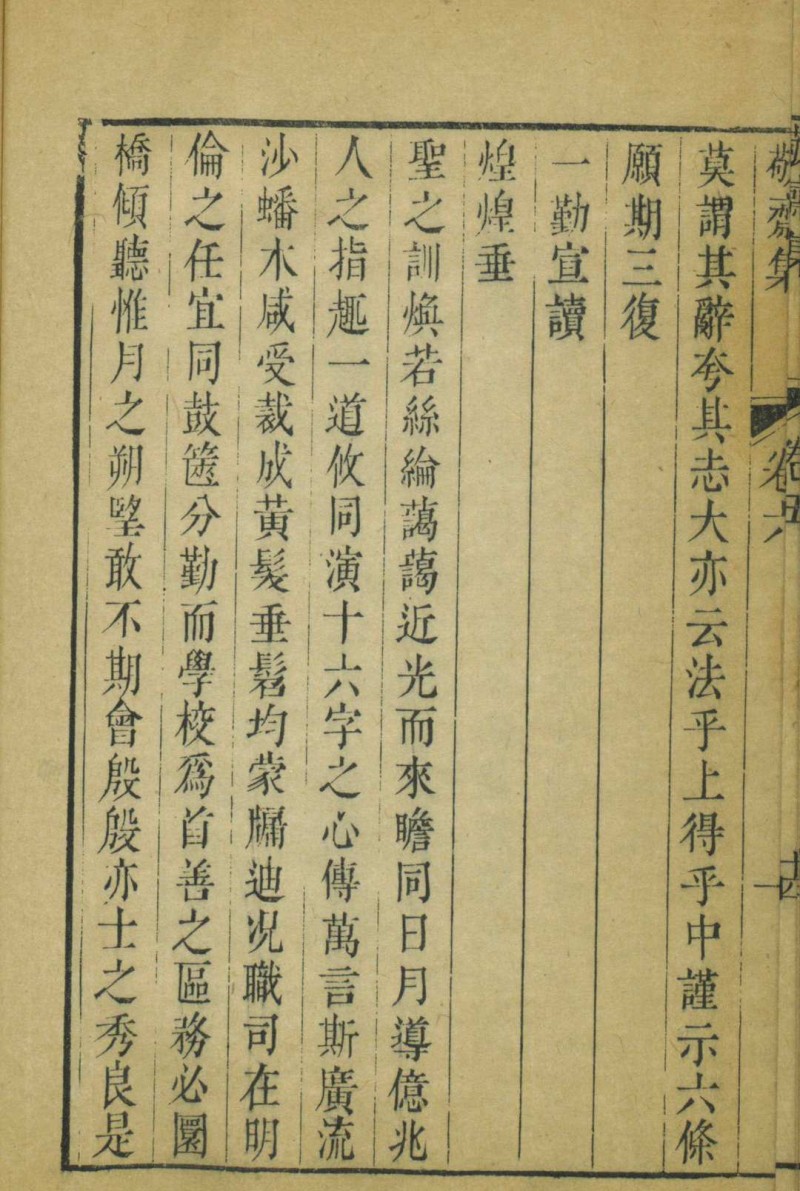 敬齋集 卷六
莫謂其辭夸其志大亦云法乎上得乎中謹示六條
願期三復
一勤宣讀
煌煌垂
聖之訓煥若絲綸藹藹近光而來瞻同日月導億兆
人之指趣一道攸同演十六字之心傳萬言斯廣流
沙蟠木咸受裁成黃髮垂髫均蒙牖迪况職司在明
倫之任宜同鼓篋分勤而學校爲首善之區務必圜
橋傾聽惟月之朔朢敢不期會殷殷亦士之秀良是